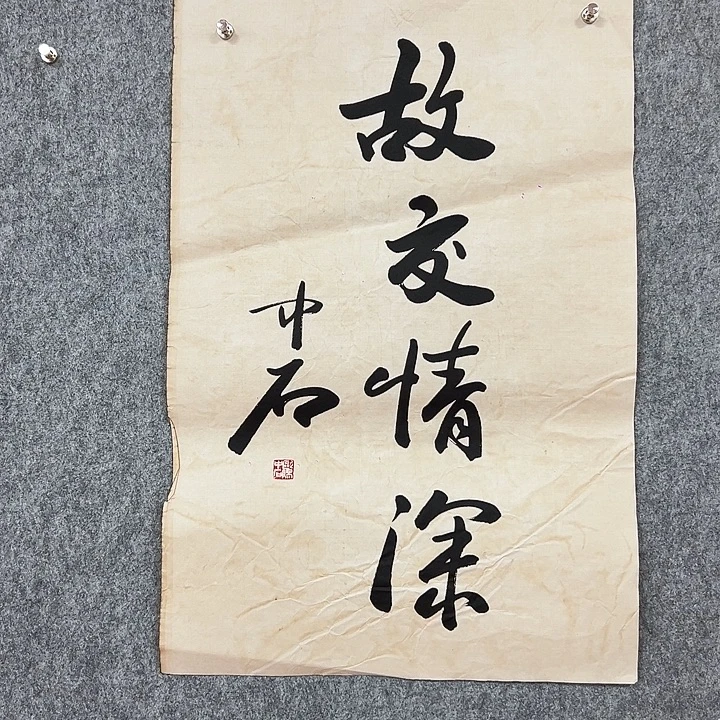 故交情深
中石